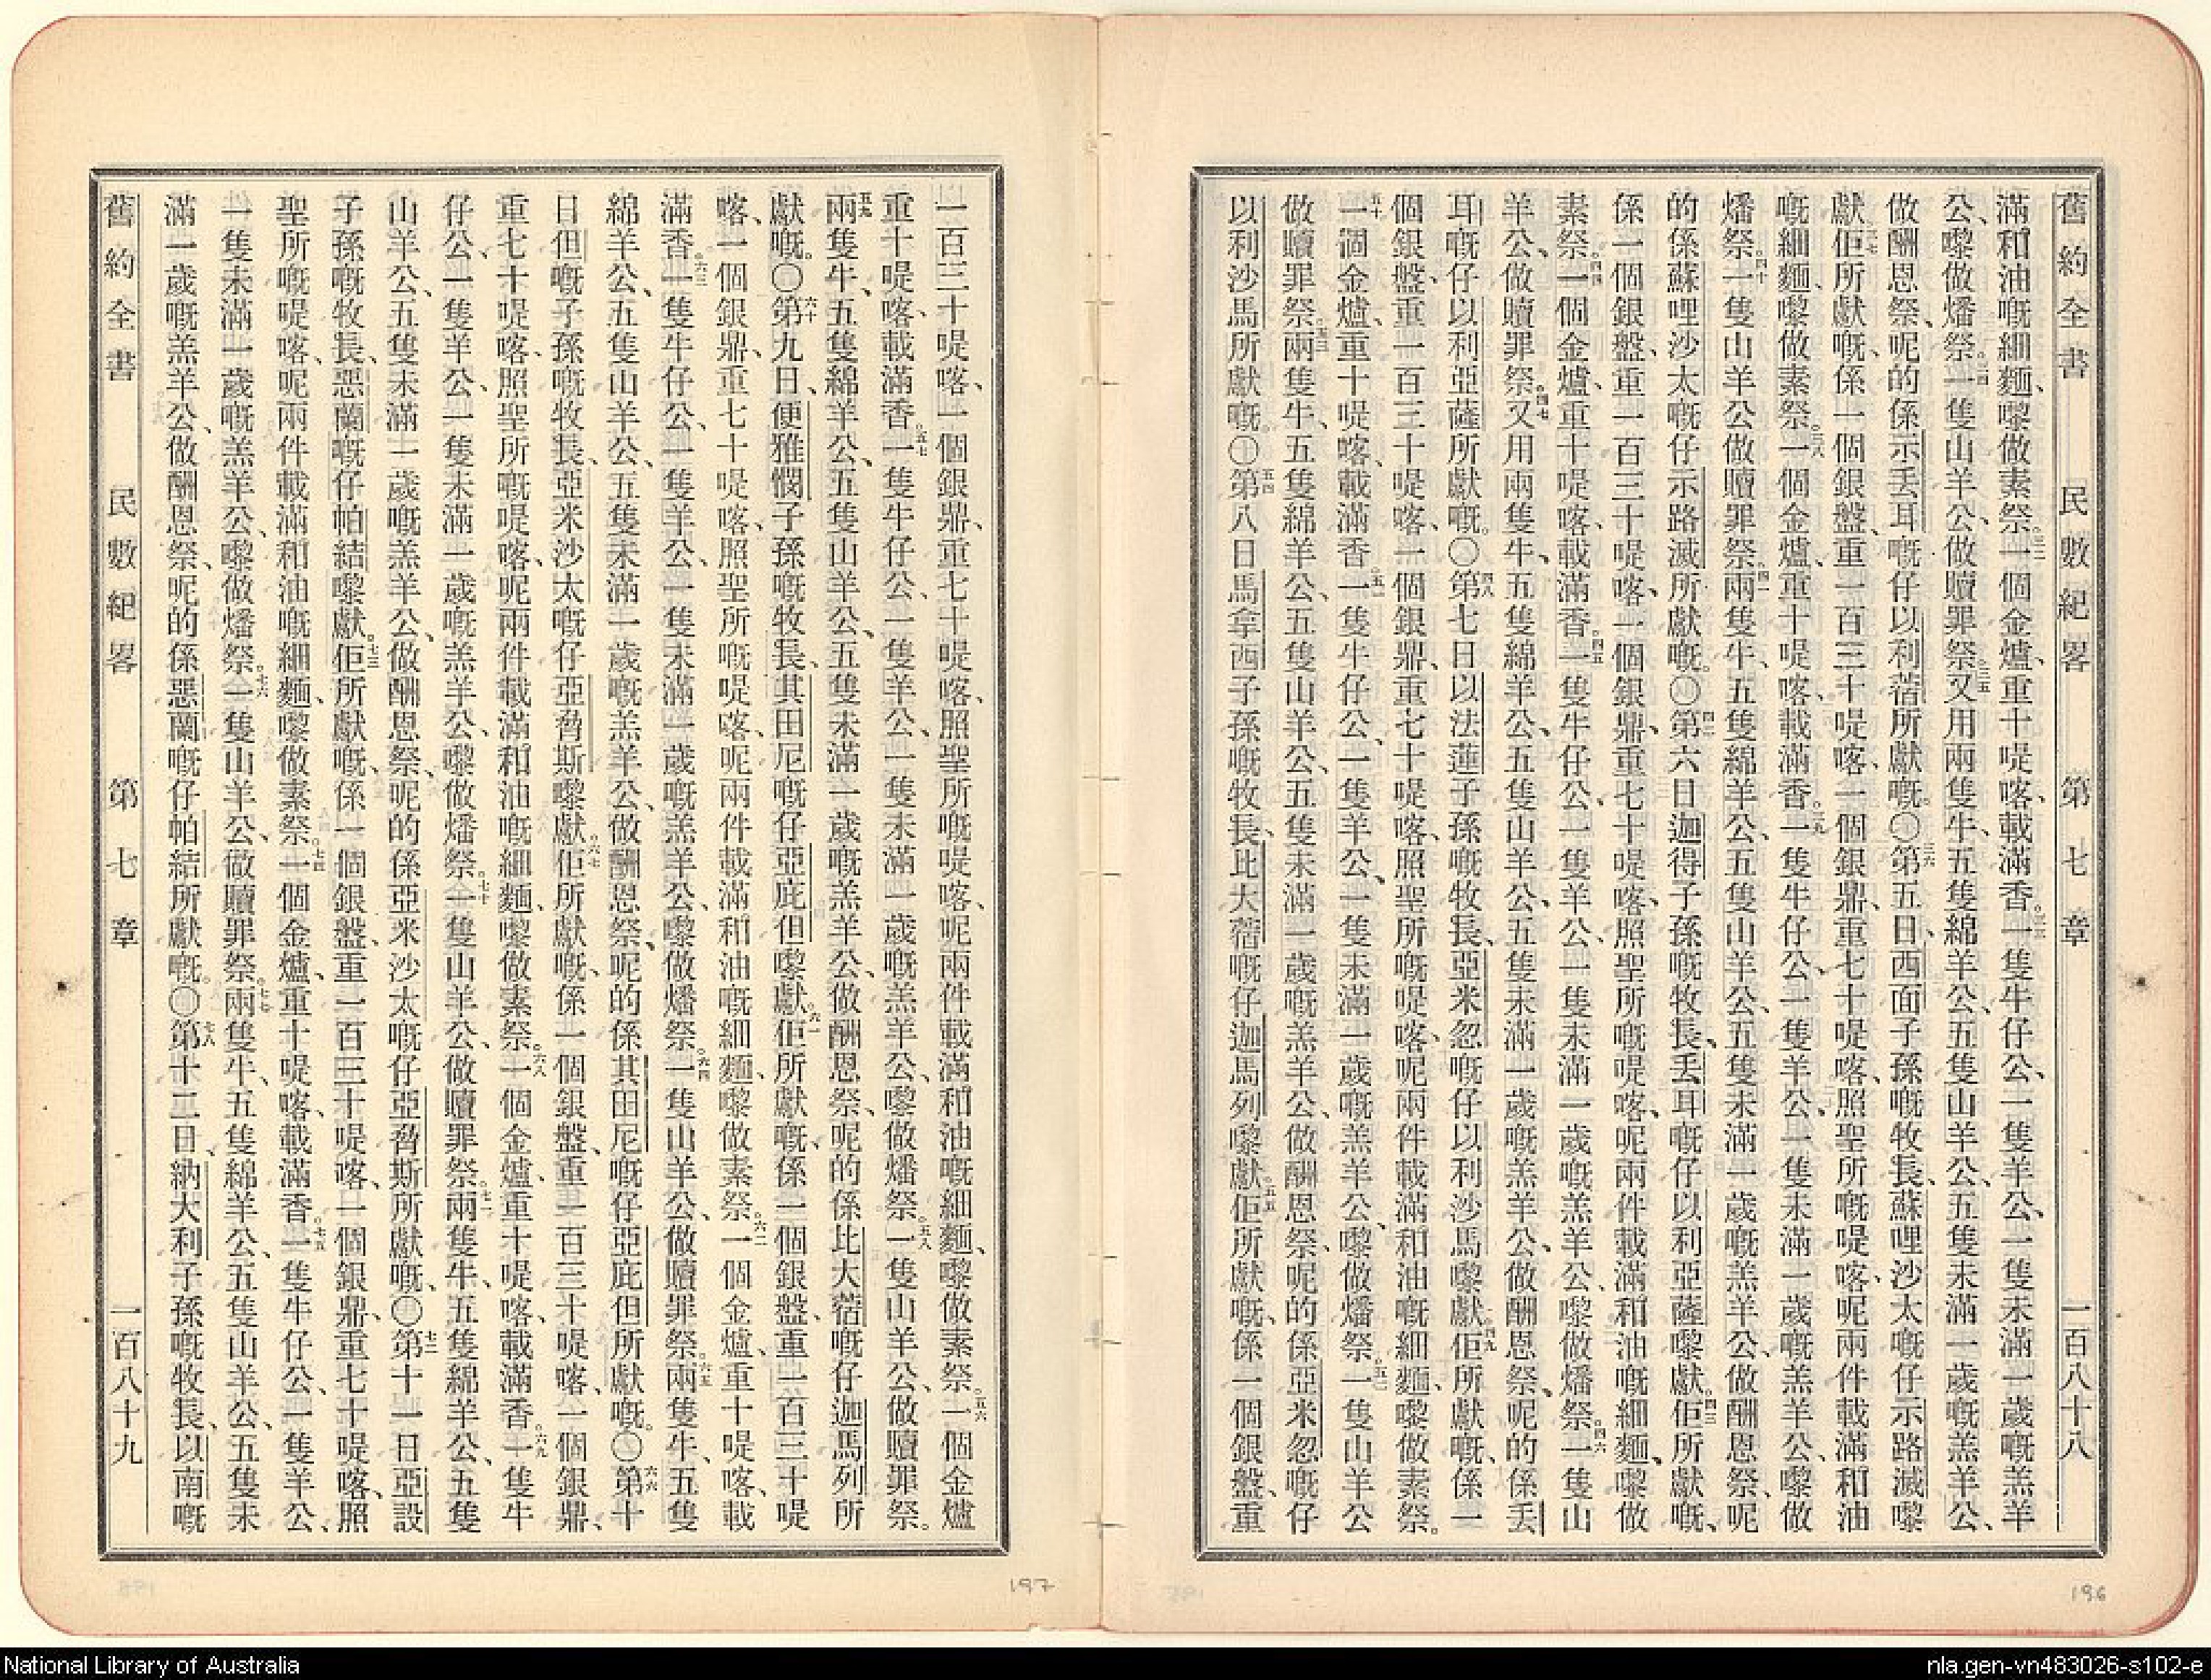 舊約全書　民數紀畧　第七章　一百八十八
滿和油嘅細麵、嚟做素祭。三二一個金爐、重十㖷喀、載滿香。三三一隻牛仔公、一隻羊公、一隻未滿一歲嘅羔羊
公、嚟做燔祭。三四一隻山羊公、做贖罪祭。三五又用兩隻牛、五隻綿羊公、五隻山羊公、五隻未滿一歲嘅羔羊公、
做酬恩祭、呢的係示丟耳嘅仔以利蓿所獻嘅。〇三六第五日、西面子孫嘅牧長、蘇哩沙太嘅仔示路滅嚟
獻、三七佢所獻嘅、係一個銀盤、重一百三十㖷喀、一個銀鼎、重七十㖷喀、照聖所嘅㖷喀、呢兩件載滿和油
嘅細麵、嚟做素祭。三八一個金爐、重十㖷喀、載滿香。三九一隻牛仔公、一隻羊公、一隻未滿一歲嘅羔羊公、嚟做
燔祭。四十一隻山羊公、做贖罪祭。四一兩隻牛、五隻綿羊公、五隻山羊公、五隻未滿一歲嘅羔羊公、做酬恩祭、呢
的係蘇哩沙太嘅仔示路滅所獻嘅。〇四二第六日、迦得子孫嘅牧長、丟耳嘅仔以利亞薩嚟獻。四三佢所獻嘅、
係一個銀盤、重一百三十㖷喀、一個銀鼎、重七十㖷喀、照聖所嘅㖷喀、呢兩件載滿和油嘅細麵、嚟做
素祭。四四一個金爐、重十㖷喀、載滿香。四五一隻牛仔公、一隻羊公、一隻未滿一歲嘅羔羊公、嚟做燔祭。四六一隻山
羊公、做贖罪祭。四七又用兩隻牛、五隻綿羊公、五隻山羊公、五隻未滿一歲嘅羔羊公、做酬恩祭、呢的係丟
耳嘅仔以利亞薩所獻嘅。〇四八第七日、以法蓮子孫嘅牧長、亞米忽嘅仔以利沙馬嚟獻、四九佢所獻嘅、係一
個銀盤、重一百三十㖷喀、一個銀鼎、重七十㖷喀、照聖所嘅㖷喀、呢兩件載滿和油嘅細麵、嚟做素祭。
五十一個金爐、重十㖷喀、載滿香。五一一隻牛仔公、一隻羊公、一隻未滿一歲嘅羔羊公、嚟做燔祭。五二一隻山羊公
做贖罪祭。五三兩隻牛、五隻綿羊公、五隻山羊公、五隻未滿一歲嘅羔羊公、做酬恩祭、呢的係亞米忽嘅仔
以利沙馬所獻嘅。〇五四第八日、馬拿西子孫嘅牧長、比大蓿嘅仔迦馬列嚟獻。五五佢所獻嘅、係一個銀盤、重
一百三十㖷喀、一個銀鼎、重七十㖷喀、照聖所嘅㖷喀、呢兩件載滿和油嘅細麵、嚟做素祭。五六一個金爐
重十㖷喀、載滿香。五七一隻牛仔公、一隻羊公、一隻未滿一歲嘅羔羊公、嚟做燔祭。五八一隻山羊公、做贖罪祭。
五九兩隻牛、五隻綿羊公、五隻山羊公、五隻未滿一歲嘅羔羊公、做酬恩祭、呢的係比大蓿嘅仔迦馬列所
獻嘅。〇六十第九日、便雅憫子孫嘅牧長、其田尼嘅仔亞庇但嚟獻。六一佢所獻嘅、係一個銀盤、重一百三十㖷
喀、一個銀鼎、重七十㖷喀、照聖所嘅㖷喀、呢兩件載滿和油嘅細麵、嚟做素祭。六二一個金爐、重十㖷喀、載
滿香。六三一隻牛仔公、一隻羊公、一隻未滿一歲嘅羔羊公、嚟做燔祭。六四一隻山羊公、做贖罪祭。六五兩隻牛、五隻
綿羊公、五隻山羊公、五隻未滿一歲嘅羔羊公、做酬恩祭、呢的係其田尼嘅仔亞庇但所獻嘅。〇六六第十
日、但嘅子孫嘅牧長、亞米沙太嘅仔亞脅斯嚟獻。六七佢所獻嘅、係一個銀盤、重一百三十㖷喀、一個銀鼎、
重七十㖷喀、照聖所嘅㖷喀、呢兩件載滿和油嘅細麵、嚟做素祭。六八一個金爐、重十㖷喀、載滿香。六九一隻牛
仔公、一隻羊公、一隻未滿一歲嘅羔羊公、嚟做燔祭。七十一隻山羊公、做贖罪祭。七一兩隻牛、五隻綿羊公、五隻
山羊公、五隻未滿一歲嘅羔羊公、做酬恩祭、呢的係亞米沙太嘅仔亞脅斯所獻嘅、〇七二第十一日、亞設
子孫嘅牧長、惡蘭嘅仔帕結嚟獻。七三佢所獻嘅、係一個銀盤、重一百三十㖷喀、一個銀鼎、重七十㖷喀、照
聖所嘅㖷喀、呢兩件載滿和油嘅細麵、嚟做素祭。七四一個金爐、重十㖷喀、載滿香。七五一隻牛仔公、一隻羊公、
一隻未滿一歲嘅羔羊公、嚟做燔祭。七六一隻山羊公、做贖罪祭。七七兩隻牛、五隻綿羊公、五隻山羊公、五隻未
滿一歲嘅羔羊公、做酬恩祭、呢的係惡蘭嘅仔帕結所獻嘅。〇七八第十二日、納大利子孫嘅牧長、以南嘅
舊約全書　民數紀畧　第七章　一百八十九
197
196
National Library of Australia
nla.gen-vn483026-s102-e